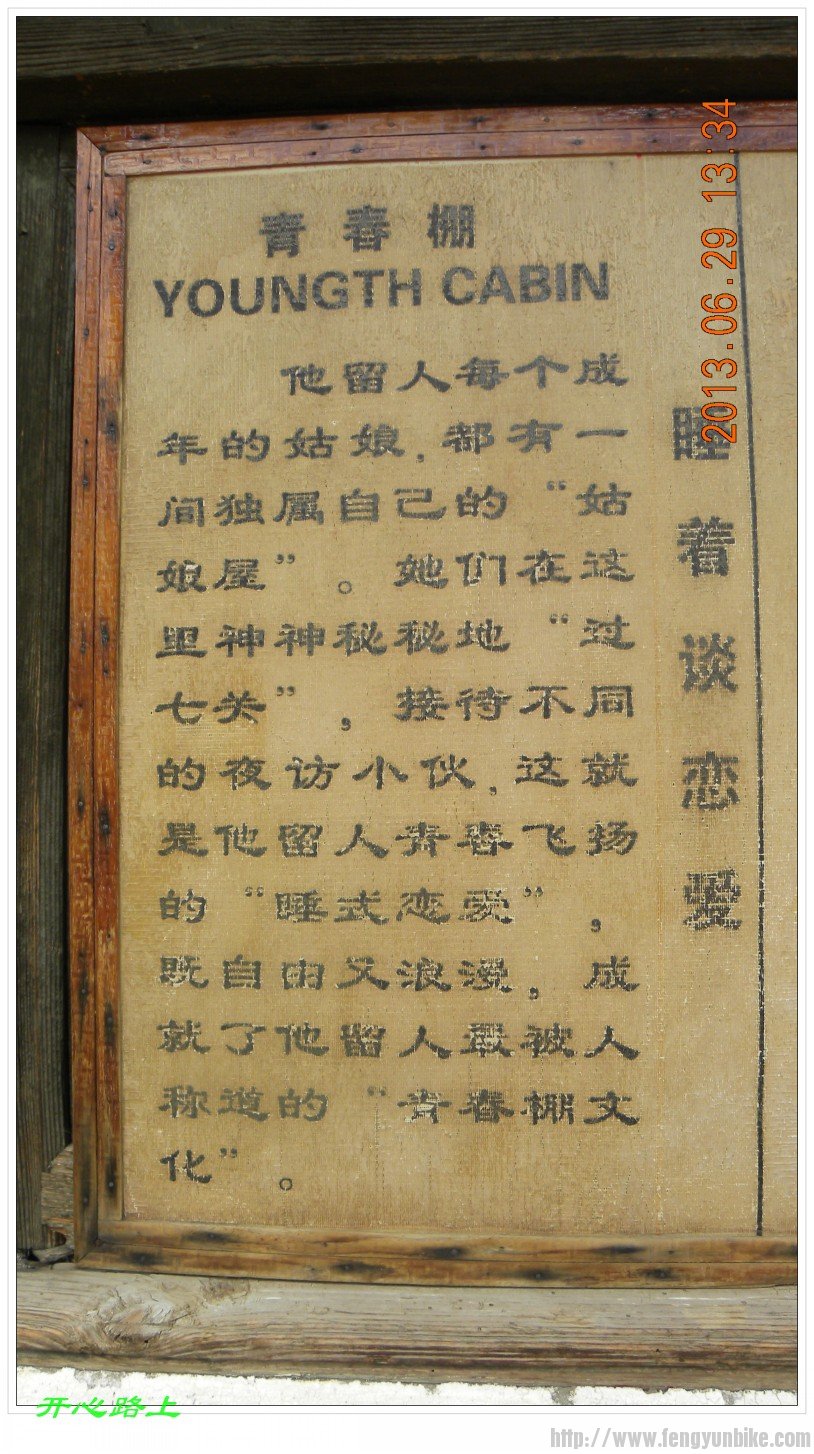 青春棚
YOUNGTH CABIN
他留人每个成
年的姑娘，都有一
间独属自己的“姑
娘屋”。她们在这
里神神秘秘地“过
七关”，接待不同
的夜访小伙，这就
是他留人青春飞扬
的“睡式恋爱”，
既自由又浪漫，成
就了他留人最被人
称道的“青春棚文
化”。
睡着谈恋爱
2013.06.29 13:34
开心路上
http://www.fengyunbike.com